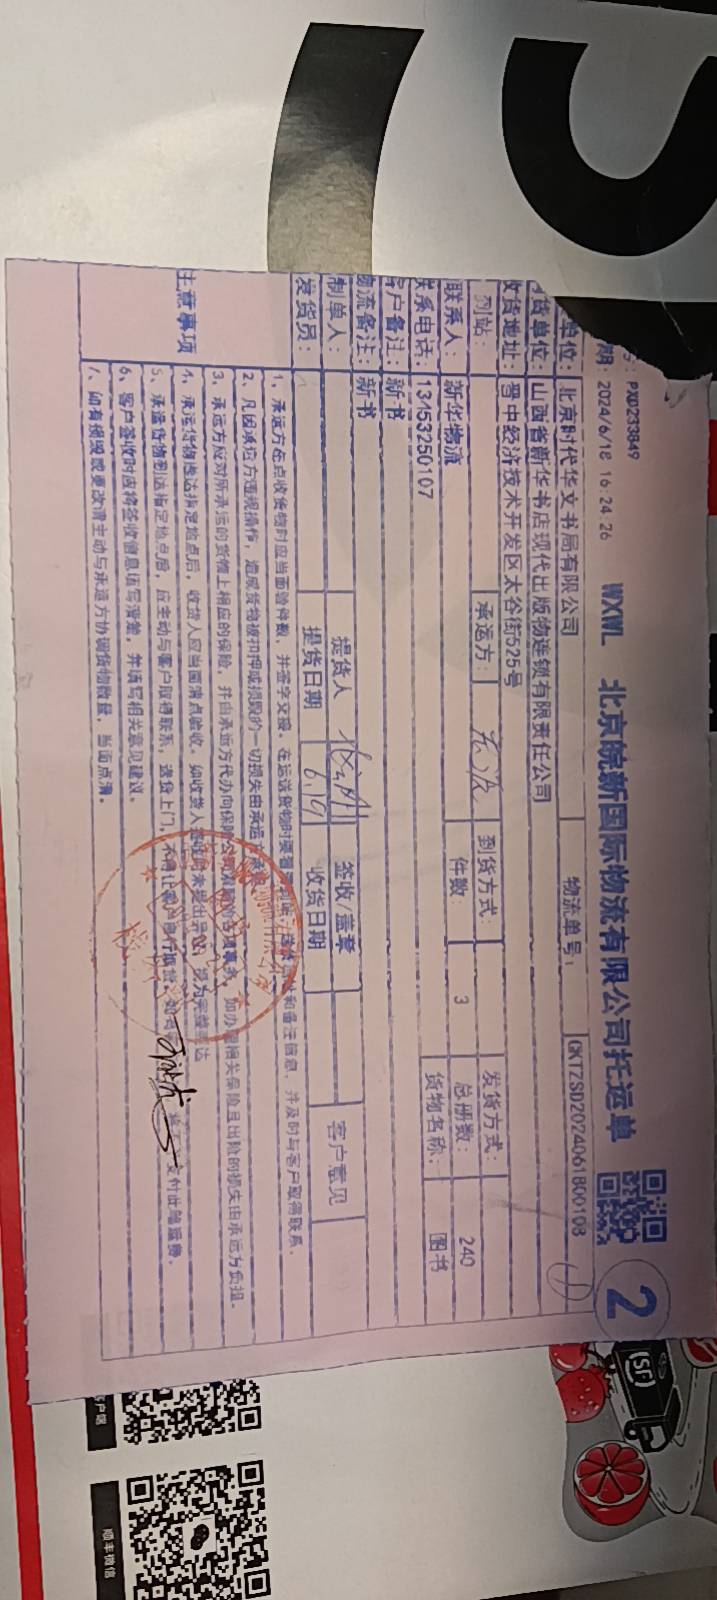 号：PX0233849
期：2024/6/18 16:24:26
WXWL 北京皖新国际物流有限公司托运单
2
单位：北京时代华文书局有限公司
物流单号：
CKTZSD2024061800103
货单位：山西省新华书店现代出版物连锁有限责任公司
收货地址：晋中经济技术开发区太谷街525号
到站：
承运方：
到货方式：
发货方式：
联系人：新华物流
件数：3
总册数：240
联系电话：13453250107
货物名称：图书
客户备注：新书
物流备注：新书
制单人：
提货人
签收/盖章
客户意见
发货员：
提货日期 6.19
收货日期
注意事项
1、承运方在点收货物时应当面验件数，并签字交接，在运送货物时要看
和备注信息，并及时与客户取得联系。
2、凡因承运方违规操作，造成货物被扣押或损毁的一切损失由承运方承
3、承运方应对所承运的货物上相应的保险，并由承运方代办向保险公司
如办理相关保险且出险的损失由承运方负担。
4、承运货物抵达指定地点后，收货人应当面清点验收，如收货人签收时未提出异议，视为完整送达
5、承运货物到达指定地点后，应主动与客户取得联系，送货上门，不得让客户自行取货，如
支付此趟运费。
6、客户签收时应将签收信息填写清楚，并填写相关意见建议。
7、如有损毁或更改请主动与承运方协调货物数量，当面点清。
SF
客户端
顺丰微信